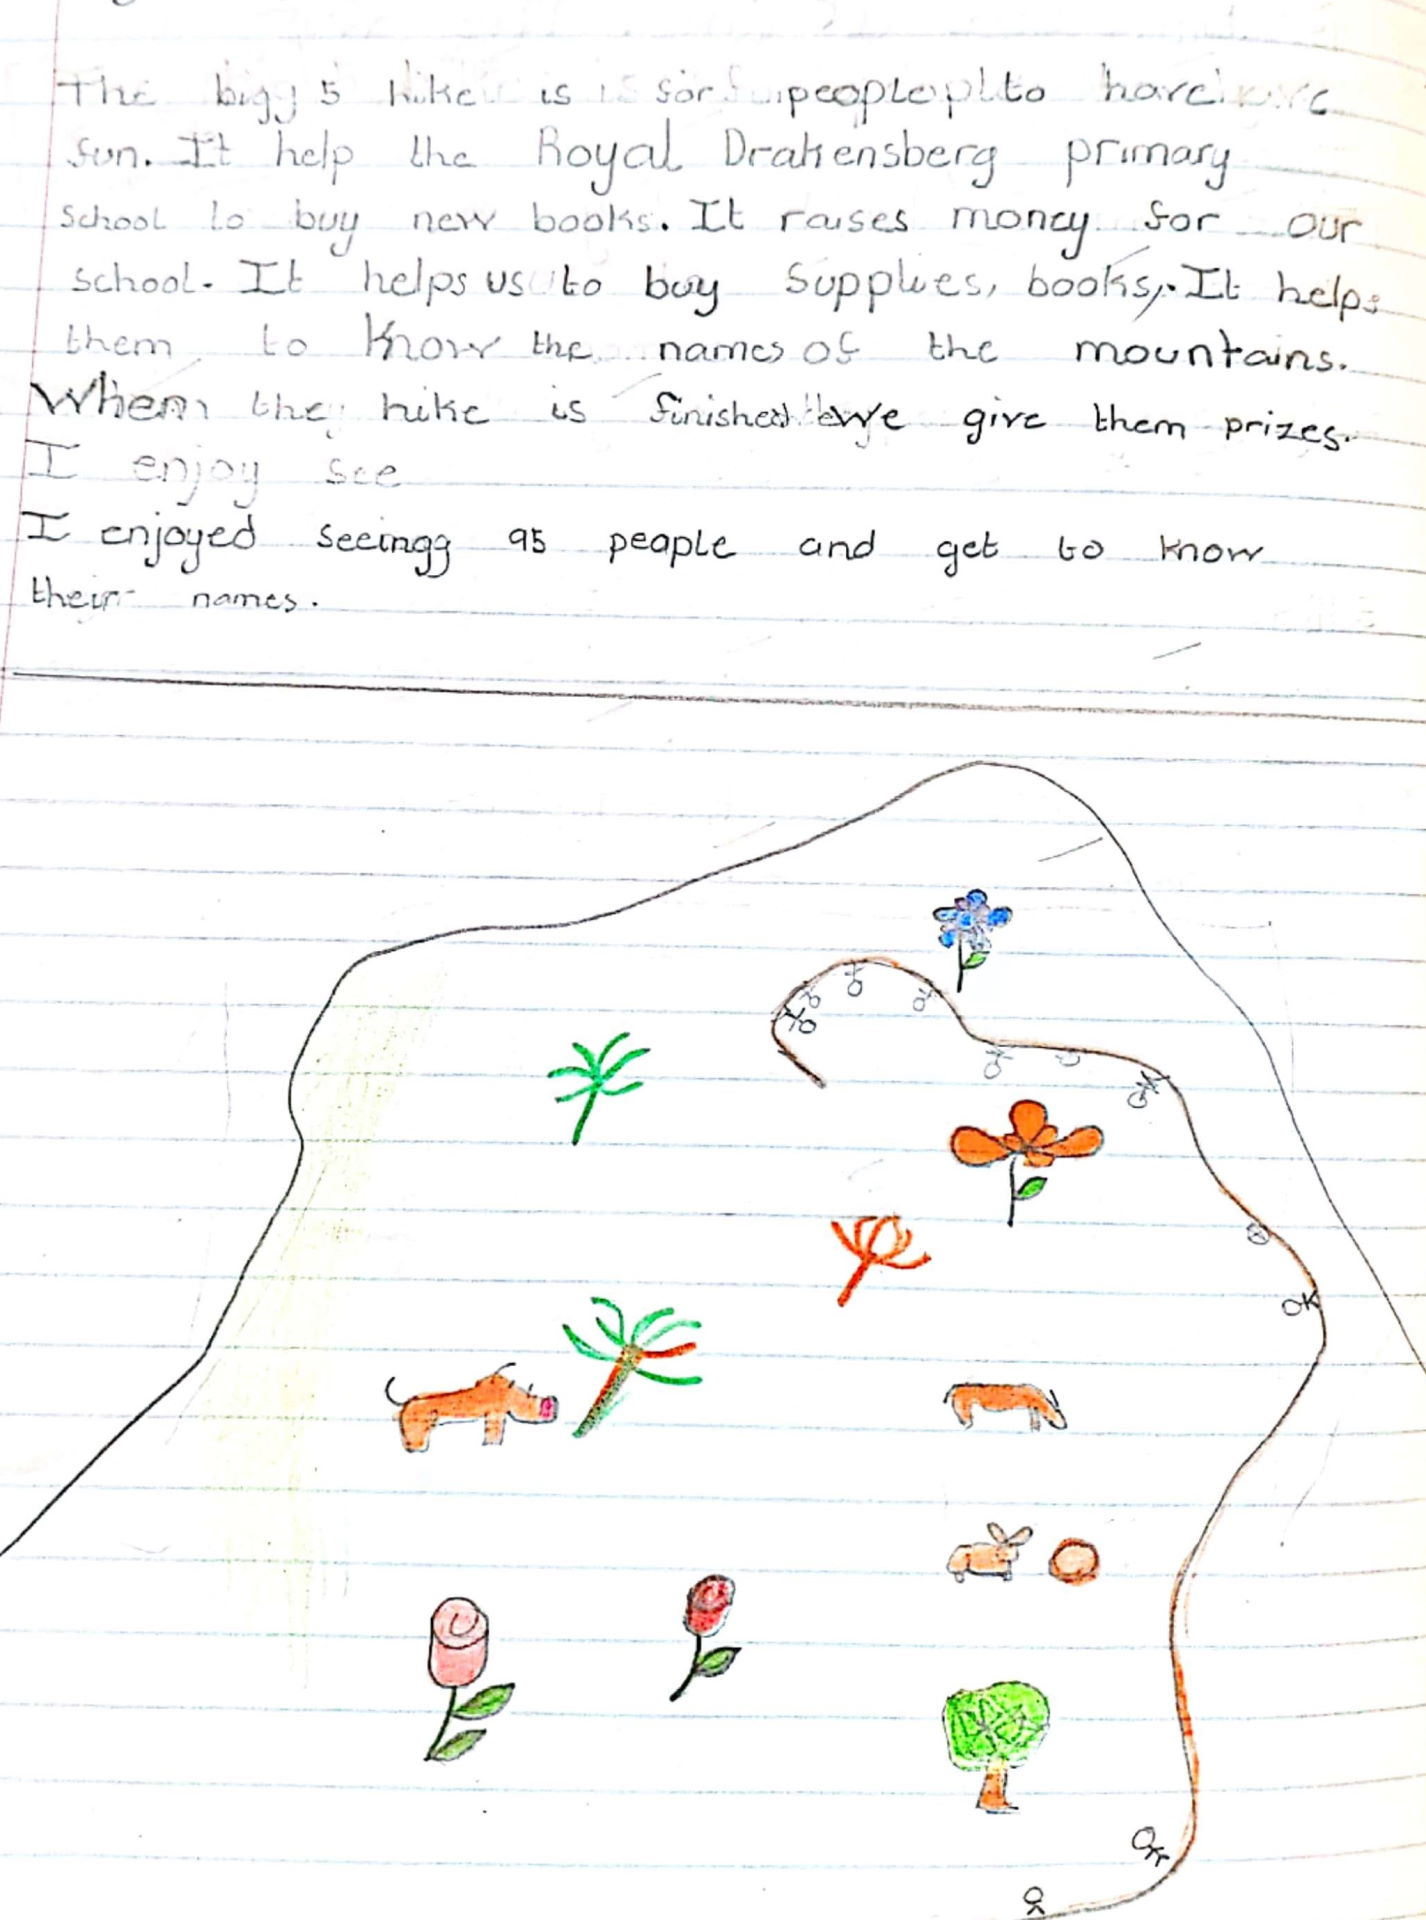 The bigg 5 hike is for people to have
fun. It help the Royal Drakensberg primary
school to buy new books. It raises money for our
school. It helps us to buy Supplies, books. It helps
them to know the names of the mountains.
When the hike is finished we give them prizes.
I enjoy see
I enjoyed seeingg 95 people and get to know
their names.